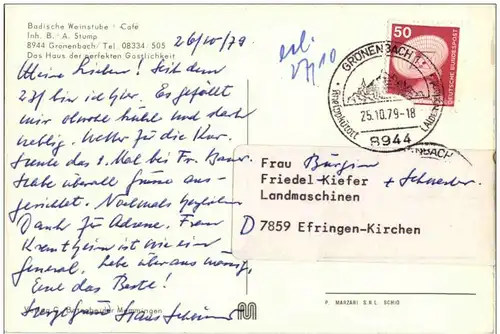 Badische Weinstube · Café
Inh. B. + A. Stump
8944 Grönenbach / Tel. 08334 - 505
Das Haus der perfekten Gastlichkeit
26/10/79
27/10
Meine Lieben! Seit dem
bin ich hier. Es gefällt
mir obwohl kühl und stark
neblig. Wetter für die Kur.
Heute das 1. Mal bei Fr. Bauer.
Habe überall Grüsse aus-
gerichtet. Nochmals herzlichen
Dank für Adresse. Frau
ist wie ein
General. Lebe überaus mässig.
Euch das Beste!
50
DEUTSCHE BUNDESPOST
GRÖNENBACH 1
Kneippkurort
25.10.79-18
8944
Frau Bürgin
Friedel-Kiefer + Schwester
Landmaschinen
D 7859 Efringen-Kirchen
Memmingen
P. MARZARI S.R.L. SCHIO